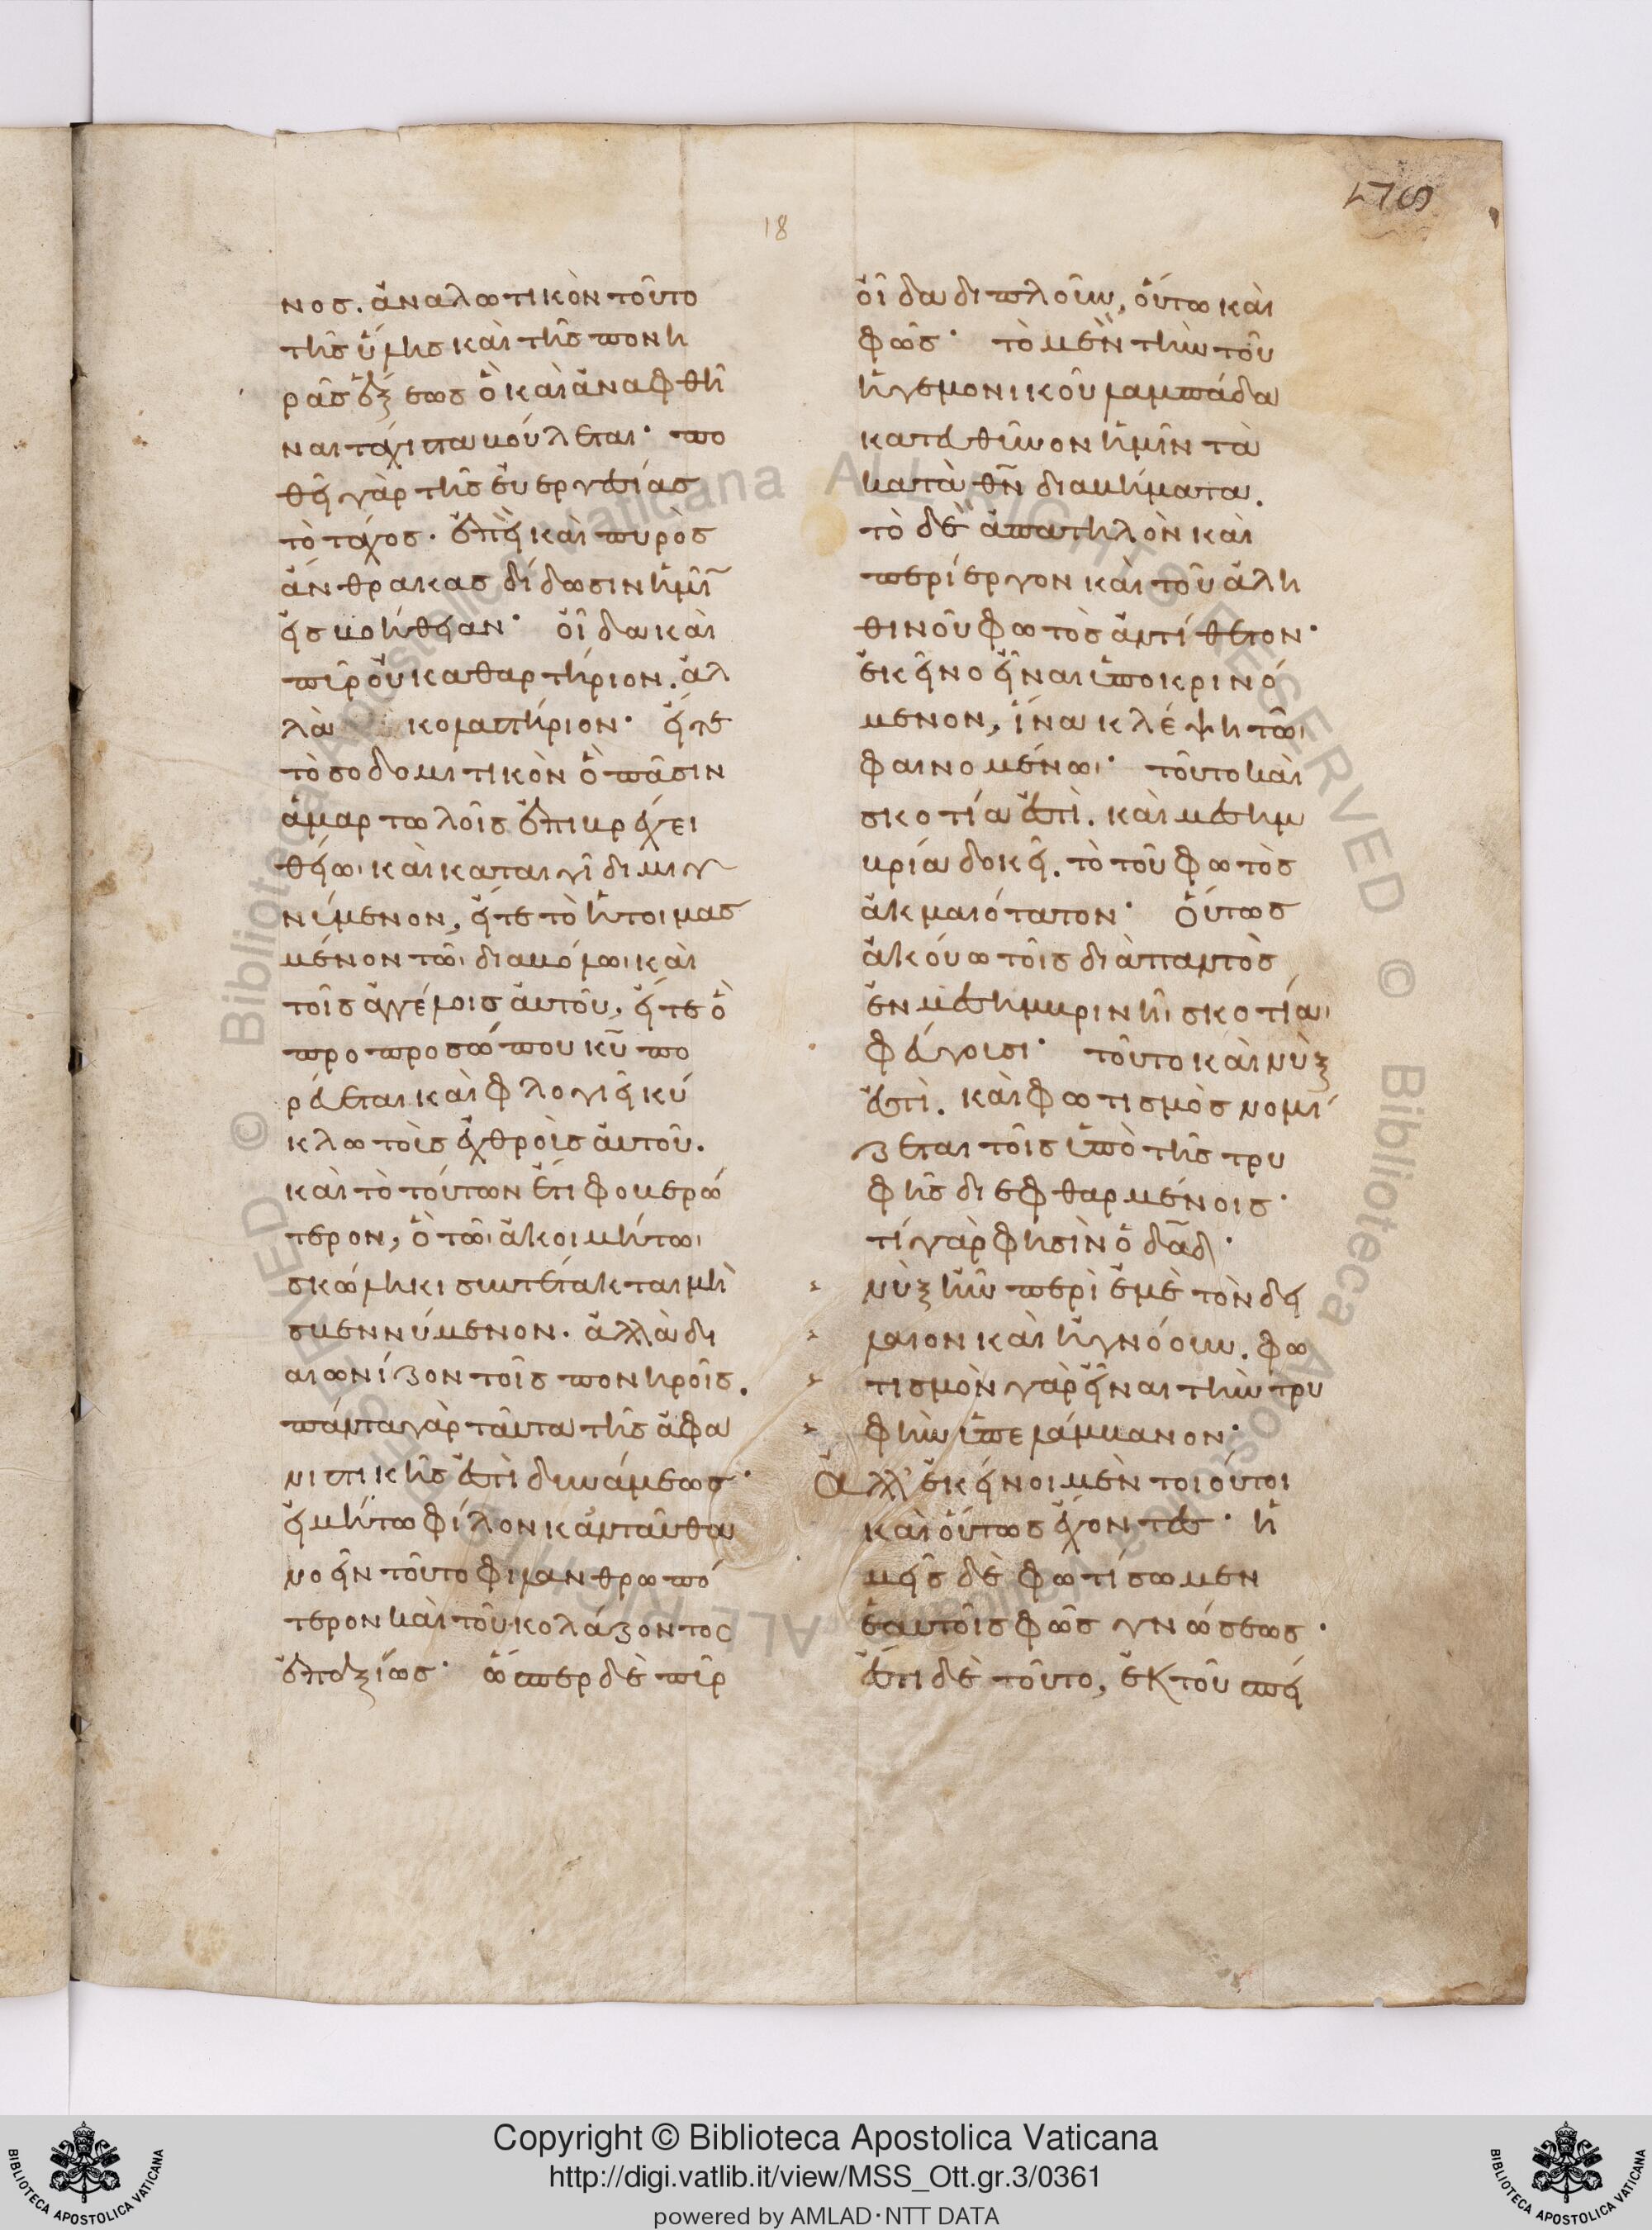 176
18
νοσ. ἀναλωτικὸν τοῦτο
τῆσ ὕλησ καὶ τῆσ πονη
ρᾶσ ἕξεωσ ὃ καὶ ἀναφθῆ
ναι τάχιστα βούλεται· πο
θεῖ γὰρ τῆσ εὐεργεσίασ
τὸ τάχοσ. ἐπεὶ καὶ πυρὸσ
ἄνθρακασ δίδωσιν ἡμῖ
εἰσ βοήθειαν· οἶδα καὶ
πῦρ οὐ καθαρτήριον. ἀλ
λὰ κολαστήριον· εἴτε
τὸ σοδομιτικὸν ὃ πᾶσιν
ἁμαρτωλοῖσ ἐπιβρέχει
θείωι καὶ καταιγίδι μιγ
νύμενον, εἴτε τὸ ἡτοιμασ
μένον τῶι διαβόλωι καὶ
τοῖσ ἀγγέλοισ αὐτοῦ, εἴτε ὃ
πρὸ προσώπου κυ πο
ρεύεται καὶ φλογιεῖ κύ
κλω τοὺσ ἐχθροὺσ αὐτοῦ.
καὶ τὸ τούτων ἔτι φοβερώ
τερον, ὃ τῶι ἀκοιμήτωι
σκώληκι συντέτακται μὴ
σβεννύμενον. ἀλλὰ δι
αιωνίζον τοῖσ πονηροῖσ.
πάντα γὰρ ταῦτα τῆσ ἀφα
νιστικῆσ ἐστὶ δυνάμεωσ·
εἰ μή τω φίλον κἀνταῦθα
νοεῖν τοῦτο φιλανθρωπό
τερον καὶ τοῦ κολάζοντοσ
ἐπαξίωσ· ὥσπερ δὲ πῦρ
οἶδα διπλοῦν, οὕτω καὶ
φῶσ· τὸ μὲν τὴν τοῦ
ἡγεμονικοῦ λαμπάδα
κατευθῦνον ἡμῖν τὰ
κατὰ θν διαβήματα.
τὸ δὲ ἀπατηλὸν καὶ
περίεργον καὶ τοῦ ἀλη
θινοῦ φωτὸσ ἀντίθετον·
ἐκεῖνο εἶναι ὑποκρινό
μενον, ἵνα κλέψη τῶι
φαινομένωι· τοῦτο καὶ
σκοτία ἐστὶ. καὶ μεσημ
βρία δοκεῖ. τὸ τοῦ φωτὸσ
ἀκμαιότατον· Οὕτωσ
ἀκούω τοῖσ διαπαντὸσ
ἐν μεσημβρινῆι σκοτίαι
φεύγουσι· τοῦτο καὶ νὺξ
ἐστὶ. καὶ φωτισμὸσ νομί
ζεται τοῖσ ὑπὸ τῆσ τρυ
φῆσ διεφθαρμένοισ·
τί γάρ φησὶν ὁ δαδ·
νὺξ ἦν περὶ ἐμὲ τὸν δεί
λαιον καὶ ἠγνόουν. φω
τισμὸν γὰρ εἶναι τὴν τρυ
φὴν ὑπελάμβανον·
Ἀλλ' ἐκεῖνοι μὲν τοιοῦτοι
καὶ οὕτωσ ἔχοντεσ· ἡ
μεῖσ δὲ φωτίσωμεν
ἑαυτοῖσ φῶσ γνώσεωσ·
ἔστι δὲ τοῦτο, ἐκ τοῦ σπεί
Copyright © Biblioteca Apostolica Vaticana
http://digi.vatlib.it/view/MSS_Ott.gr.3/0361
powered by AMLAD·NTT DATA
BIBLIOTECA APOSTOLICA VATICANA
BIBLIOTECA APOSTOLICA VATICANA